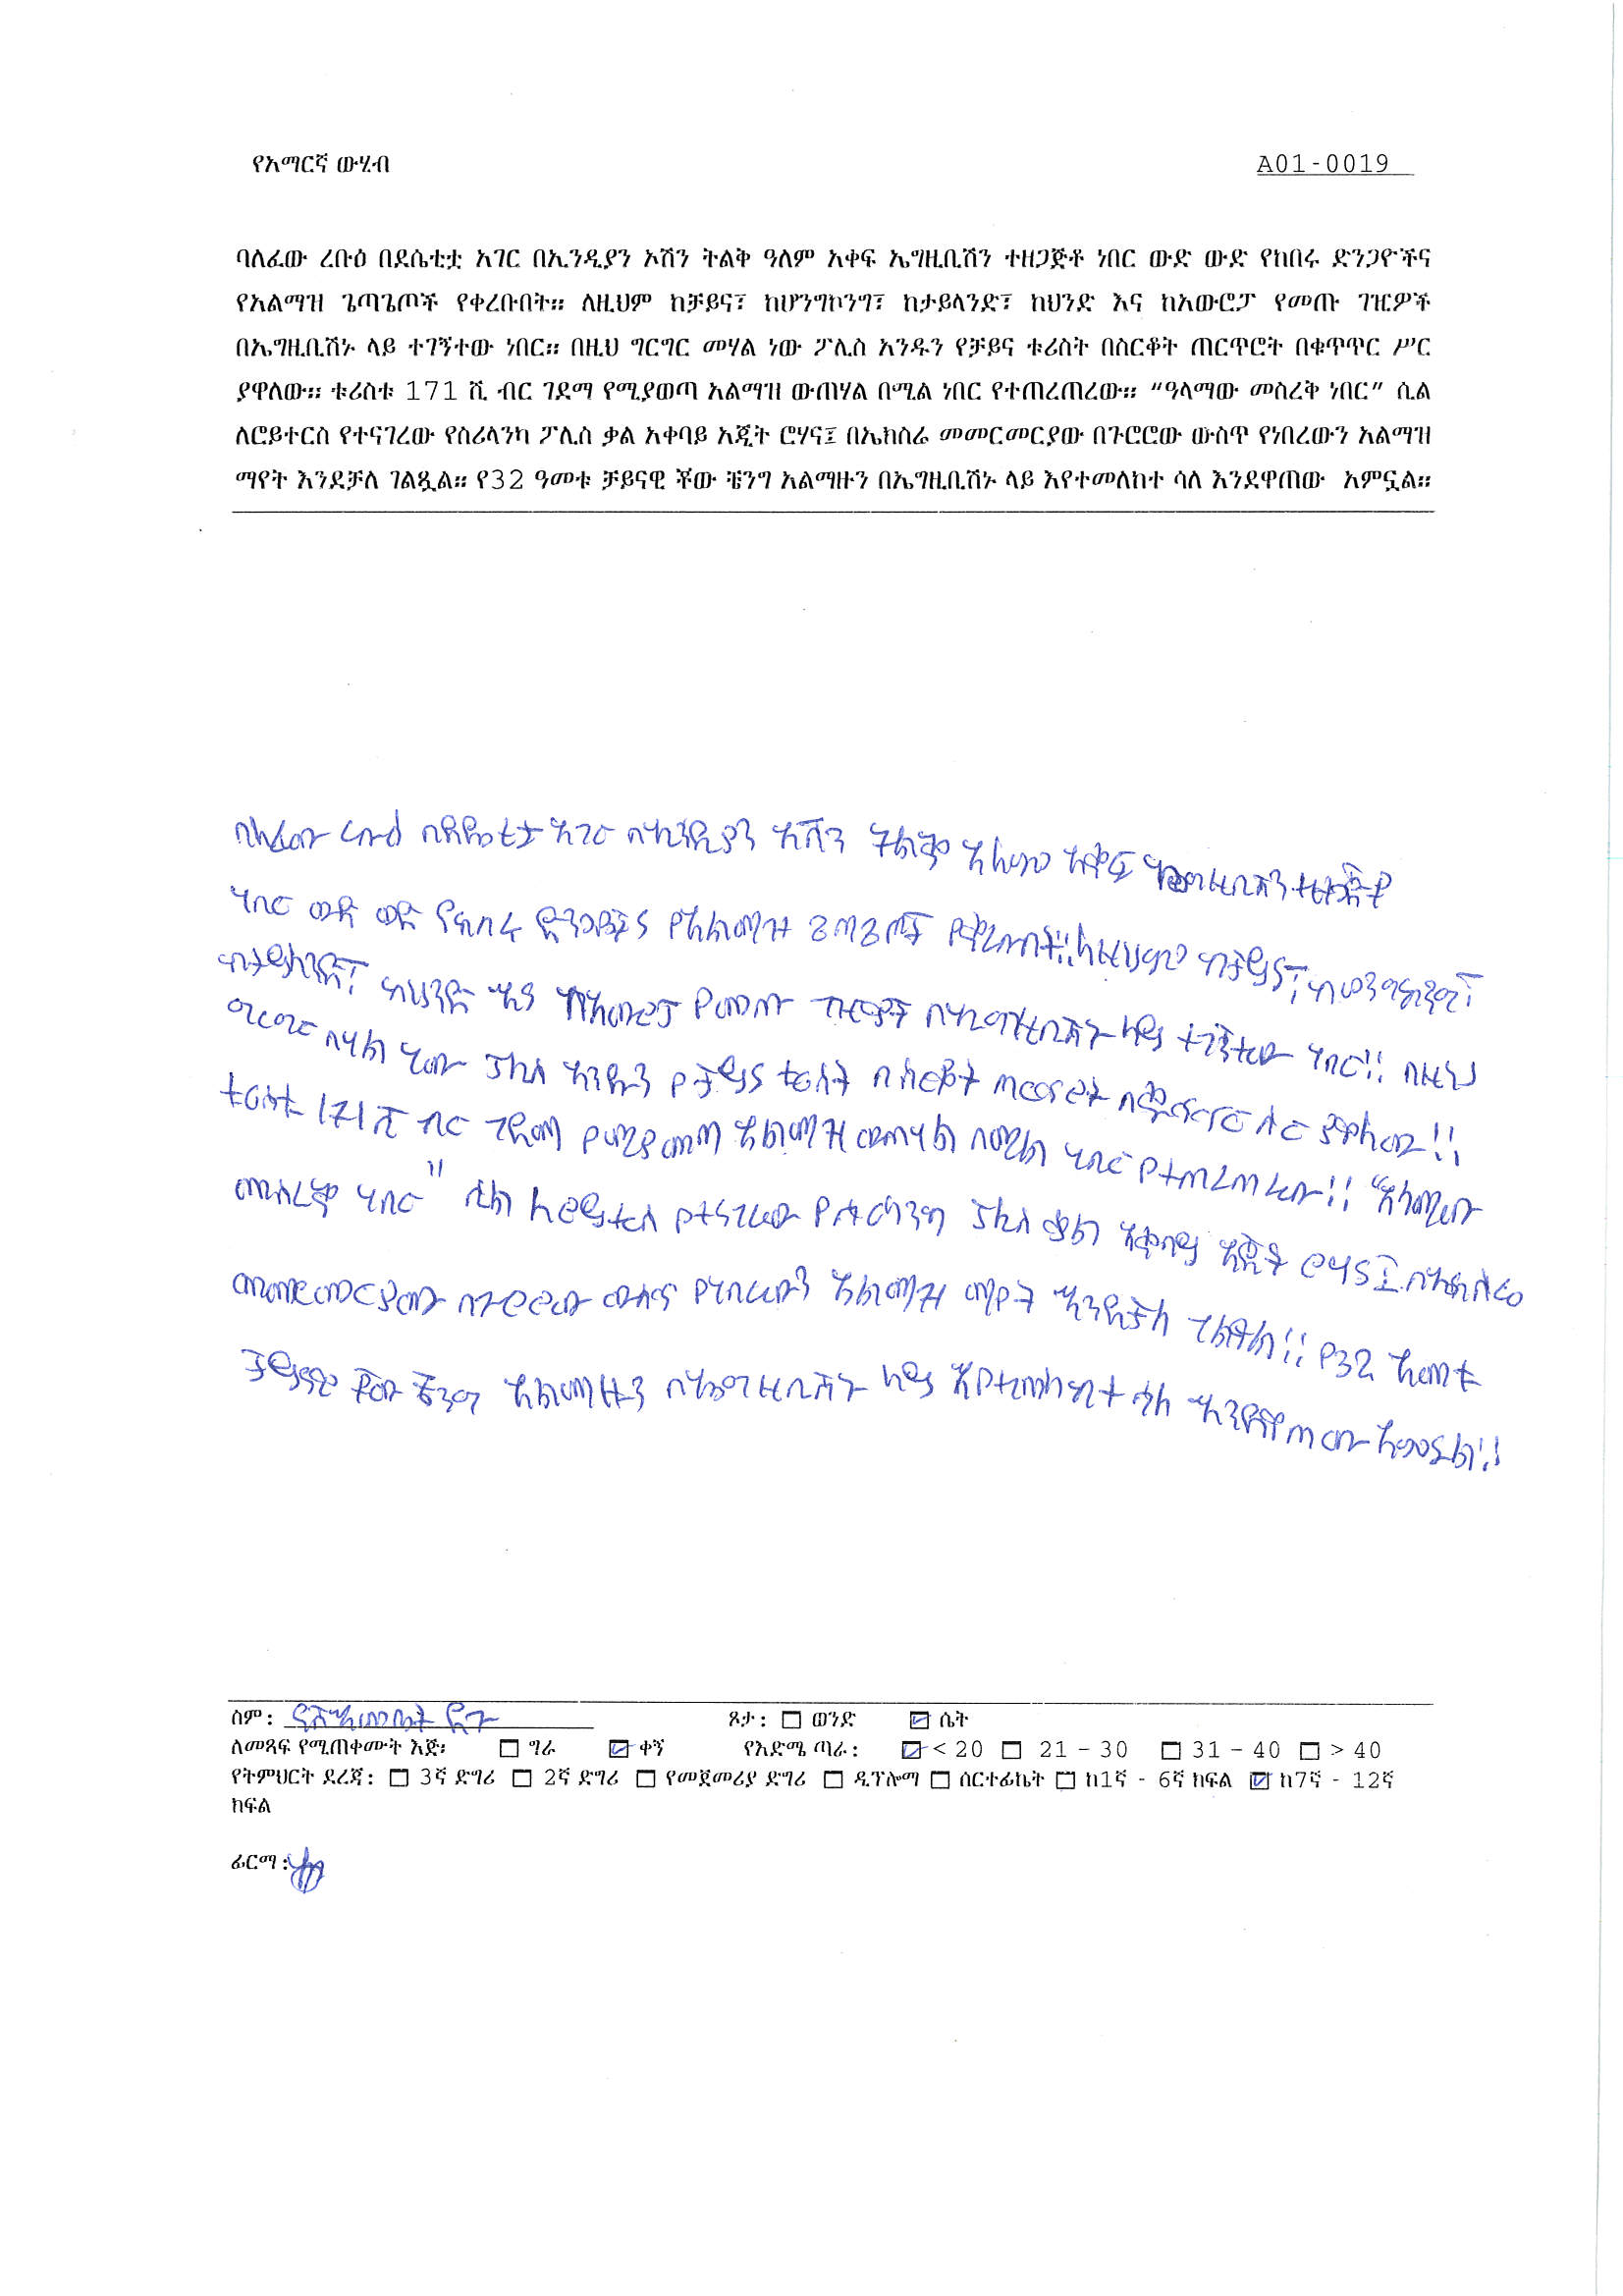 የአማርኛ ውሂብ A01-0019
ባለፈው ረቡዕ በደሴቲቷ አገር በኢንዲያን ኦሽን ትልቅ ዓለም አቀፍ ኤግዚቢሽን ተዘጋጅቶ ነበር ውድ ውድ የከበሩ ድንጋዮችና
የአልማዝ ጌጣጌጦች የቀረቡበት። ለዚህም ከቻይና፣ ከሆንግኮንግ፣ ከታይላንድ፣ ከህንድ እና ከአውሮፓ የመጡ ገዢዎች
በኤግዚቢሽኑ ላይ ተገኝተው ነበር። በዚህ ግርግር መሃል ነው ፖሊስ አንዱን የቻይና ቱሪስት በስርቆት ጠርጥሮት በቁጥጥር ሥር
ያዋለው። ቱሪስቱ 171 ሺ ብር ገደማ የሚያወጣ አልማዝ ውጠሃል በሚል ነበር የተጠረጠረው። “ዓላማው መስረቅ ነበር” ሲል
ለሮይተርስ የተናገረው የስሪላንካ ፖሊስ ቃል አቀባይ አጂት ሮሃና፤ በኤክስሬ መመርመርያው በጉሮሮው ውስጥ የነበረውን አልማዝ
ማየት እንደቻለ ገልጿል። የ32 ዓመቱ ቻይናዊ ቾው ቼንግ አልማዙን በኤግዚቢሽኑ ላይ እየተመለከተ ሳለ እንደዋጠው አምኗል።
ባለፈው ረቡዕ በደሴቲቷ አገር በኢንዲያን ኦሽን ትልቅ አለም አቀፍ ኤግዚቢሽን ተዘጋጅቶ
ነበር ውድ ውድ የከበሩ ድንጋዮችና የአልማዝ ጌጣጌጦች የቀረቡበት።ለዚህም ከቻይና፣ ከሆንግኮንግ፣
ከታይላንድ፣ ከህንድ እና ከአውሮፓ የመጡ ገዢዎች በኤግዚቢሽኑ ላይ ተገኝተው ነበር። በዚህ
ግርግር መሃል ነው ፖሊስ አንዱን የቻይና ቱሪስት በስርቆት ጠርጥሮት በቁጥጥር ስር ያዋለው።
ቱሪስቱ 171 ሺ ብር ገደማ የሚያወጣ አልማዝ ውጠሃል በሚል ነበር የተጠረጠረው። “አላማው
መስረቅ ነበር” ሲል ለሮይተርስ የተናገረው የስሪላንካ ፖሊስ ቃል አቀባይ አጂት ሮሃና፤ በኤክስሬ
መመርመርያው በጉሮሮው ውስጥ የነበረውን አልማዝ ማየት እንደቻለ ገልጿል። የ32 አመቱ
ቻይናዊ ቾው ቼንግ አልማዙን በኤግዚቢሽኑ ላይ እየተመለከተ ሳለ እንደዋጠው አምኗል።
ስም: ፆታ: ወንድ ሴት
ለመጻፍ የሚጠቀሙት እጅ፡ ግራ ቀኝ የእድሜ ጣራ: < 20 21 – 30 31 – 40 > 40
የትምህርት ደረጃ: 3ኛ ድግሪ 2ኛ ድግሪ የመጀመሪያ ድግሪ ዲፕሎማ ሰርተፊኬት ከ1ኛ - 6ኛ ክፍል ከ7ኛ - 12ኛ
ክፍል
ፊርማ: